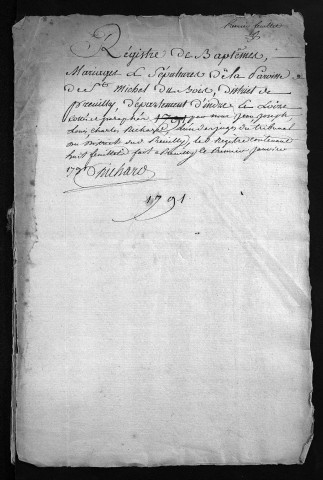 premier feuillet
Régistre de Baptêmes,
Mariages & Sépultures de la Paroisse
de St. Michel du Bois, District de
Preuilly, département d'indre et Loire
cotté et paraphé par nous jean joseph
Louis Charles Richard, l'un des juges du tribunal
du District de Preuilly, led. Registre contenant
huit feuillets fait à Preuilly le premier janvier
Richard
1791